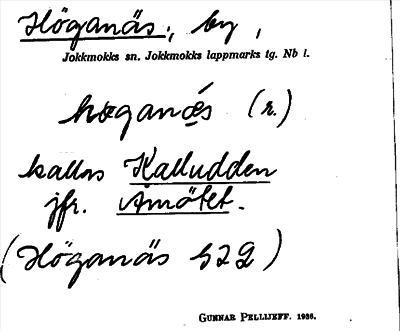 Höganäs, by,
Jokkmokks sn. Jokkmokks lappmarks tg. Nb l.
høganǽs (r.)
kallas Kalludden
jfr. Åmötet.
(Höganäs 522)
GUNNAR PELLIJEFF. 1936.